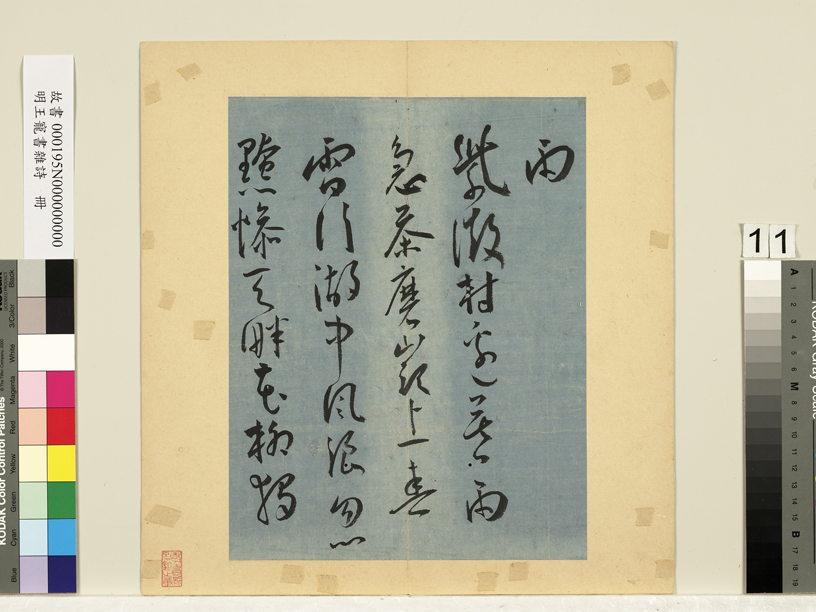 雨
紫微村邊莫雨
急茶磨山頭上春
雪行湖中風浪忽
黯慘天畔花柳獨
故書 000195N000000000
明王寵書雜詩 冊
11
KODAK Color Control Patches
Blue
Cyan
Green
Yellow
Red
Magenta
White
3/Color
Black
A 1 2 3 4 5 6 M 8 9 10 11 12 13 14 15 B 17 18 19